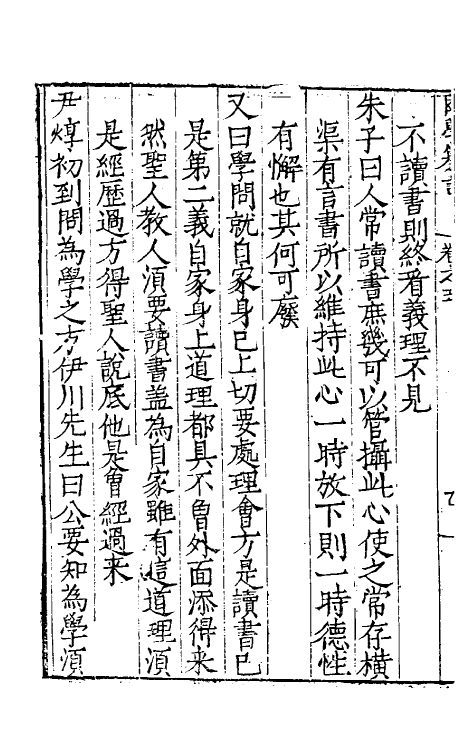 不讀書則終看義理不見
朱子曰人常讀書庶幾可以管攝此心使之常存橫
渠有言書所以維持此心一時放下則一時德性
有懈也其何可廢
又曰學問就自家身已上切要處理會方是讀書已
是第二義自家身上道理都具不曾外面添得来
然聖人教人湏要讀書盖為自家雖有這道理湏
是經歷過方得聖人說底他是曾經過来
尹焞初到問為學之方伊川先生曰公要知為學湏